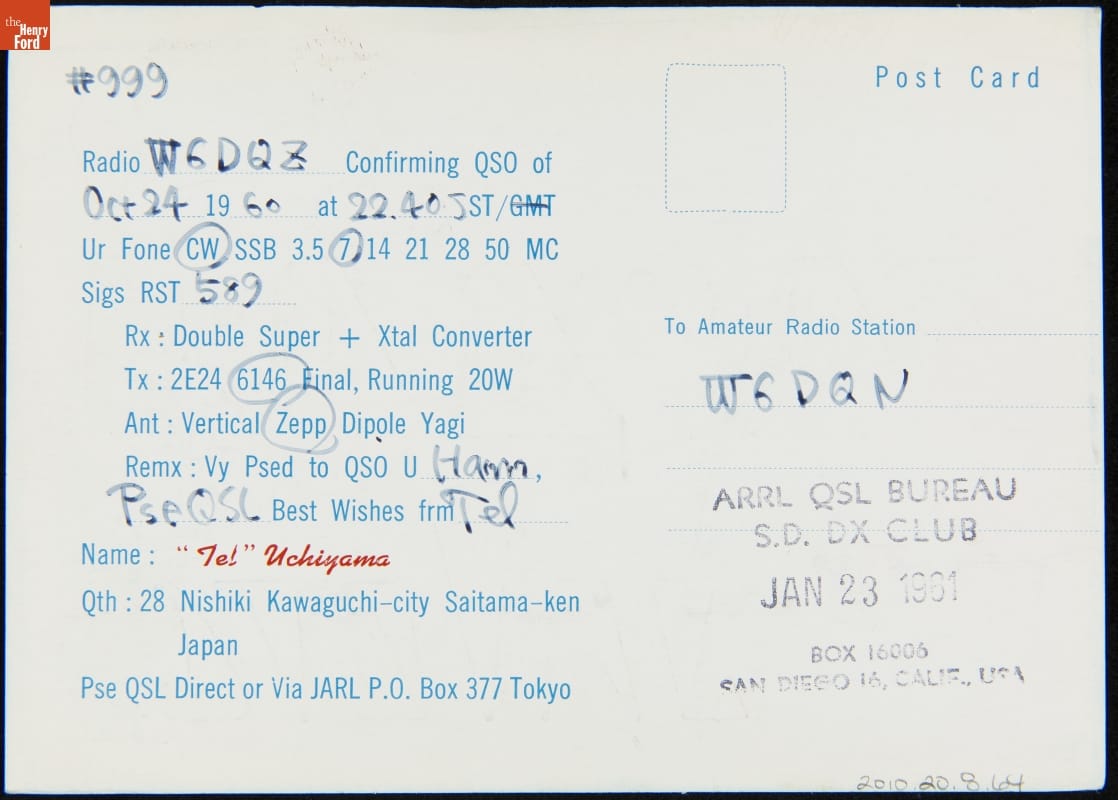 the Henry Ford
#999
Post Card
Radio W6DQZ Confirming QSO of
Oct 24 1960 at 22.40 JST/GMT
Ur Fone CW SSB 3.5 7 14 21 28 50 MC
Sigs RST 589
Rx : Double Super + Xtal Converter
Tx : 2E24 6146 Final, Running 20W
Ant : Vertical Zepp Dipole Yagi
Remx : Vy Psed to QSO U Hamm,
Pse QSL Best Wishes frm Tel
Name : "Tel" Uchiyama
Qth : 28 Nishiki Kawaguchi-city Saitama-ken
Japan
Pse QSL Direct or Via JARL P.O. Box 377 Tokyo
To Amateur Radio Station
W6DQN
ARRL QSL BUREAU
S.D. DX CLUB
JAN 23 1961
BOX 16006
SAN DIEGO 16, CALIF., USA
2010.20.8.64